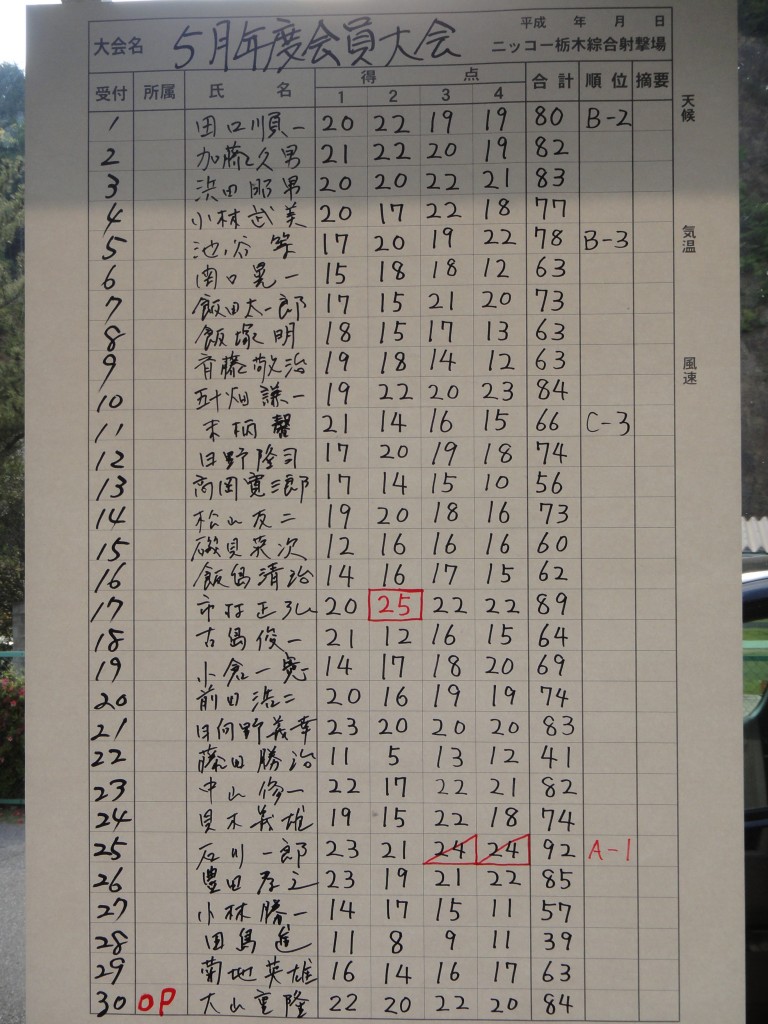 平成 年 月 日
大会名 5月年度会員大会 ニッコー栃木綜合射撃場
受付 所属 氏 名 得 点 合計 順位 摘要
1 2 3 4
1 田口順一 20 22 19 19 80 B-2
2 加藤久男 21 22 20 19 82
3 浜田昭男 20 20 22 21 83
4 小林武美 20 17 22 18 77
5 池谷 17 20 19 22 78 B-3
6 関口晃一 15 18 18 12 63
7 飯田太一郎 17 15 21 20 73
8 飯塚明 18 15 17 13 63
9 斉藤敬治 19 18 14 12 63
10 五十畑謙一 19 22 20 23 84
11 末柄馨 21 14 16 15 66 C-3
12 日野隆司 17 20 19 18 74
13 高岡寛三郎 17 14 15 10 56
14 松山友二 19 20 18 16 73
15 磯貝栄次 12 16 16 16 60
16 飯島清治 14 16 17 15 62
17 市村正弘 20 25 22 22 89
18 古島俊一 21 12 16 15 64
19 小倉一寛 14 17 18 20 69
20 前田浩二 20 16 19 19 74
21 日向野義幸 23 20 20 20 83
22 藤田勝治 11 5 13 12 41
23 中山修一 22 17 22 21 82
24 貝木義雄 19 15 22 18 74
25 石川一郎 23 21 24 24 92 A-1
26 豊田孝之 23 19 21 22 85
27 小林勝一 14 17 15 11 57
28 田島進 11 8 9 11 39
29 菊地英雄 16 14 16 17 63
30 OP 大山重隆 22 20 22 20 84
天候
気温
風速